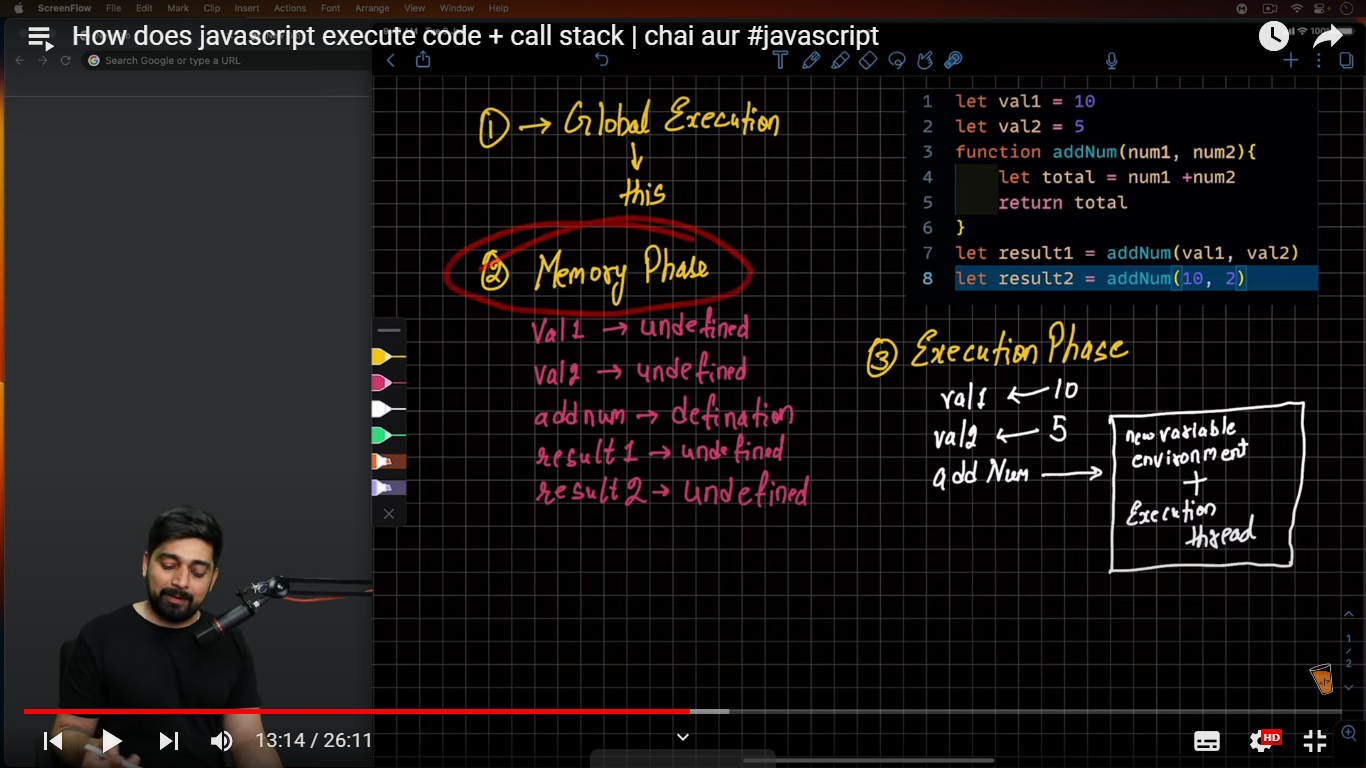 ScreenFlow File Edit Mark Clip Insert Actions Font Arrange View Window Help
How does javascript execute code + call stack | chai aur #javascript
Search Google or type a URL
① → Global Execution
↓
this
② Memory Phase
Val1 → undefined
val2 → undefined
addnum → defination
result1 → undefined
result2 → undefined
1 let val1 = 10
2 let val2 = 5
3 function addNum(num1, num2){
4 let total = num1 +num2
5 return total
6 }
7 let result1 = addNum(val1, val2)
8 let result2 = addNum(10, 2)
③ Execution Phase
val1 ← 10
val2 ← 5
add Num →
new variable
environment
+
Execution
thread
1
/
2
13:14 / 26:11
HD